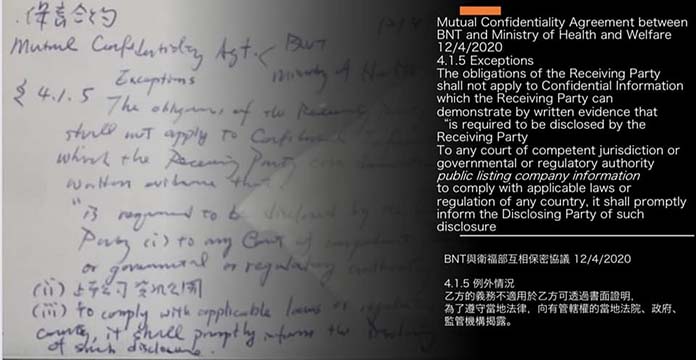 保密合約
12/4
Mutual Confidentiality Agt. < BNT
Ministry of Health
Exceptions
§ 4.1.5 The obligations of the Receiving
shall not apply to Confidential
which the Receiving Party can
written evidence that
"is required to be disclosed by
Party (i) to any Court of competent
or governmental or regulatory authority
(ii) 上市公司資訊公開
(iii) to comply with applicable laws or
country, it shall promptly inform the Disclosing
of such disclosure.
Mutual Confidentiality Agreement between
BNT and Ministry of Health and Welfare
12/4/2020
4.1.5 Exceptions
The obligations of the Receiving Party
shall not apply to Confidential Information
which the Receiving Party can
demonstrate by written evidence that
"is required to be disclosed by the
Receiving Party
To any court of competent jurisdiction or
governmental or regulatory authority
public listing company information
to comply with applicable laws or
regulation of any country, it shall promptly
inform the Disclosing Party of such
disclosure
BNT與衛福部互相保密協議 12/4/2020
4.1.5 例外情況
乙方的義務不適用於乙方可透過書面證明，
為了遵守當地法律，向有管轄權的當地法院、政府、
監管機構揭露。